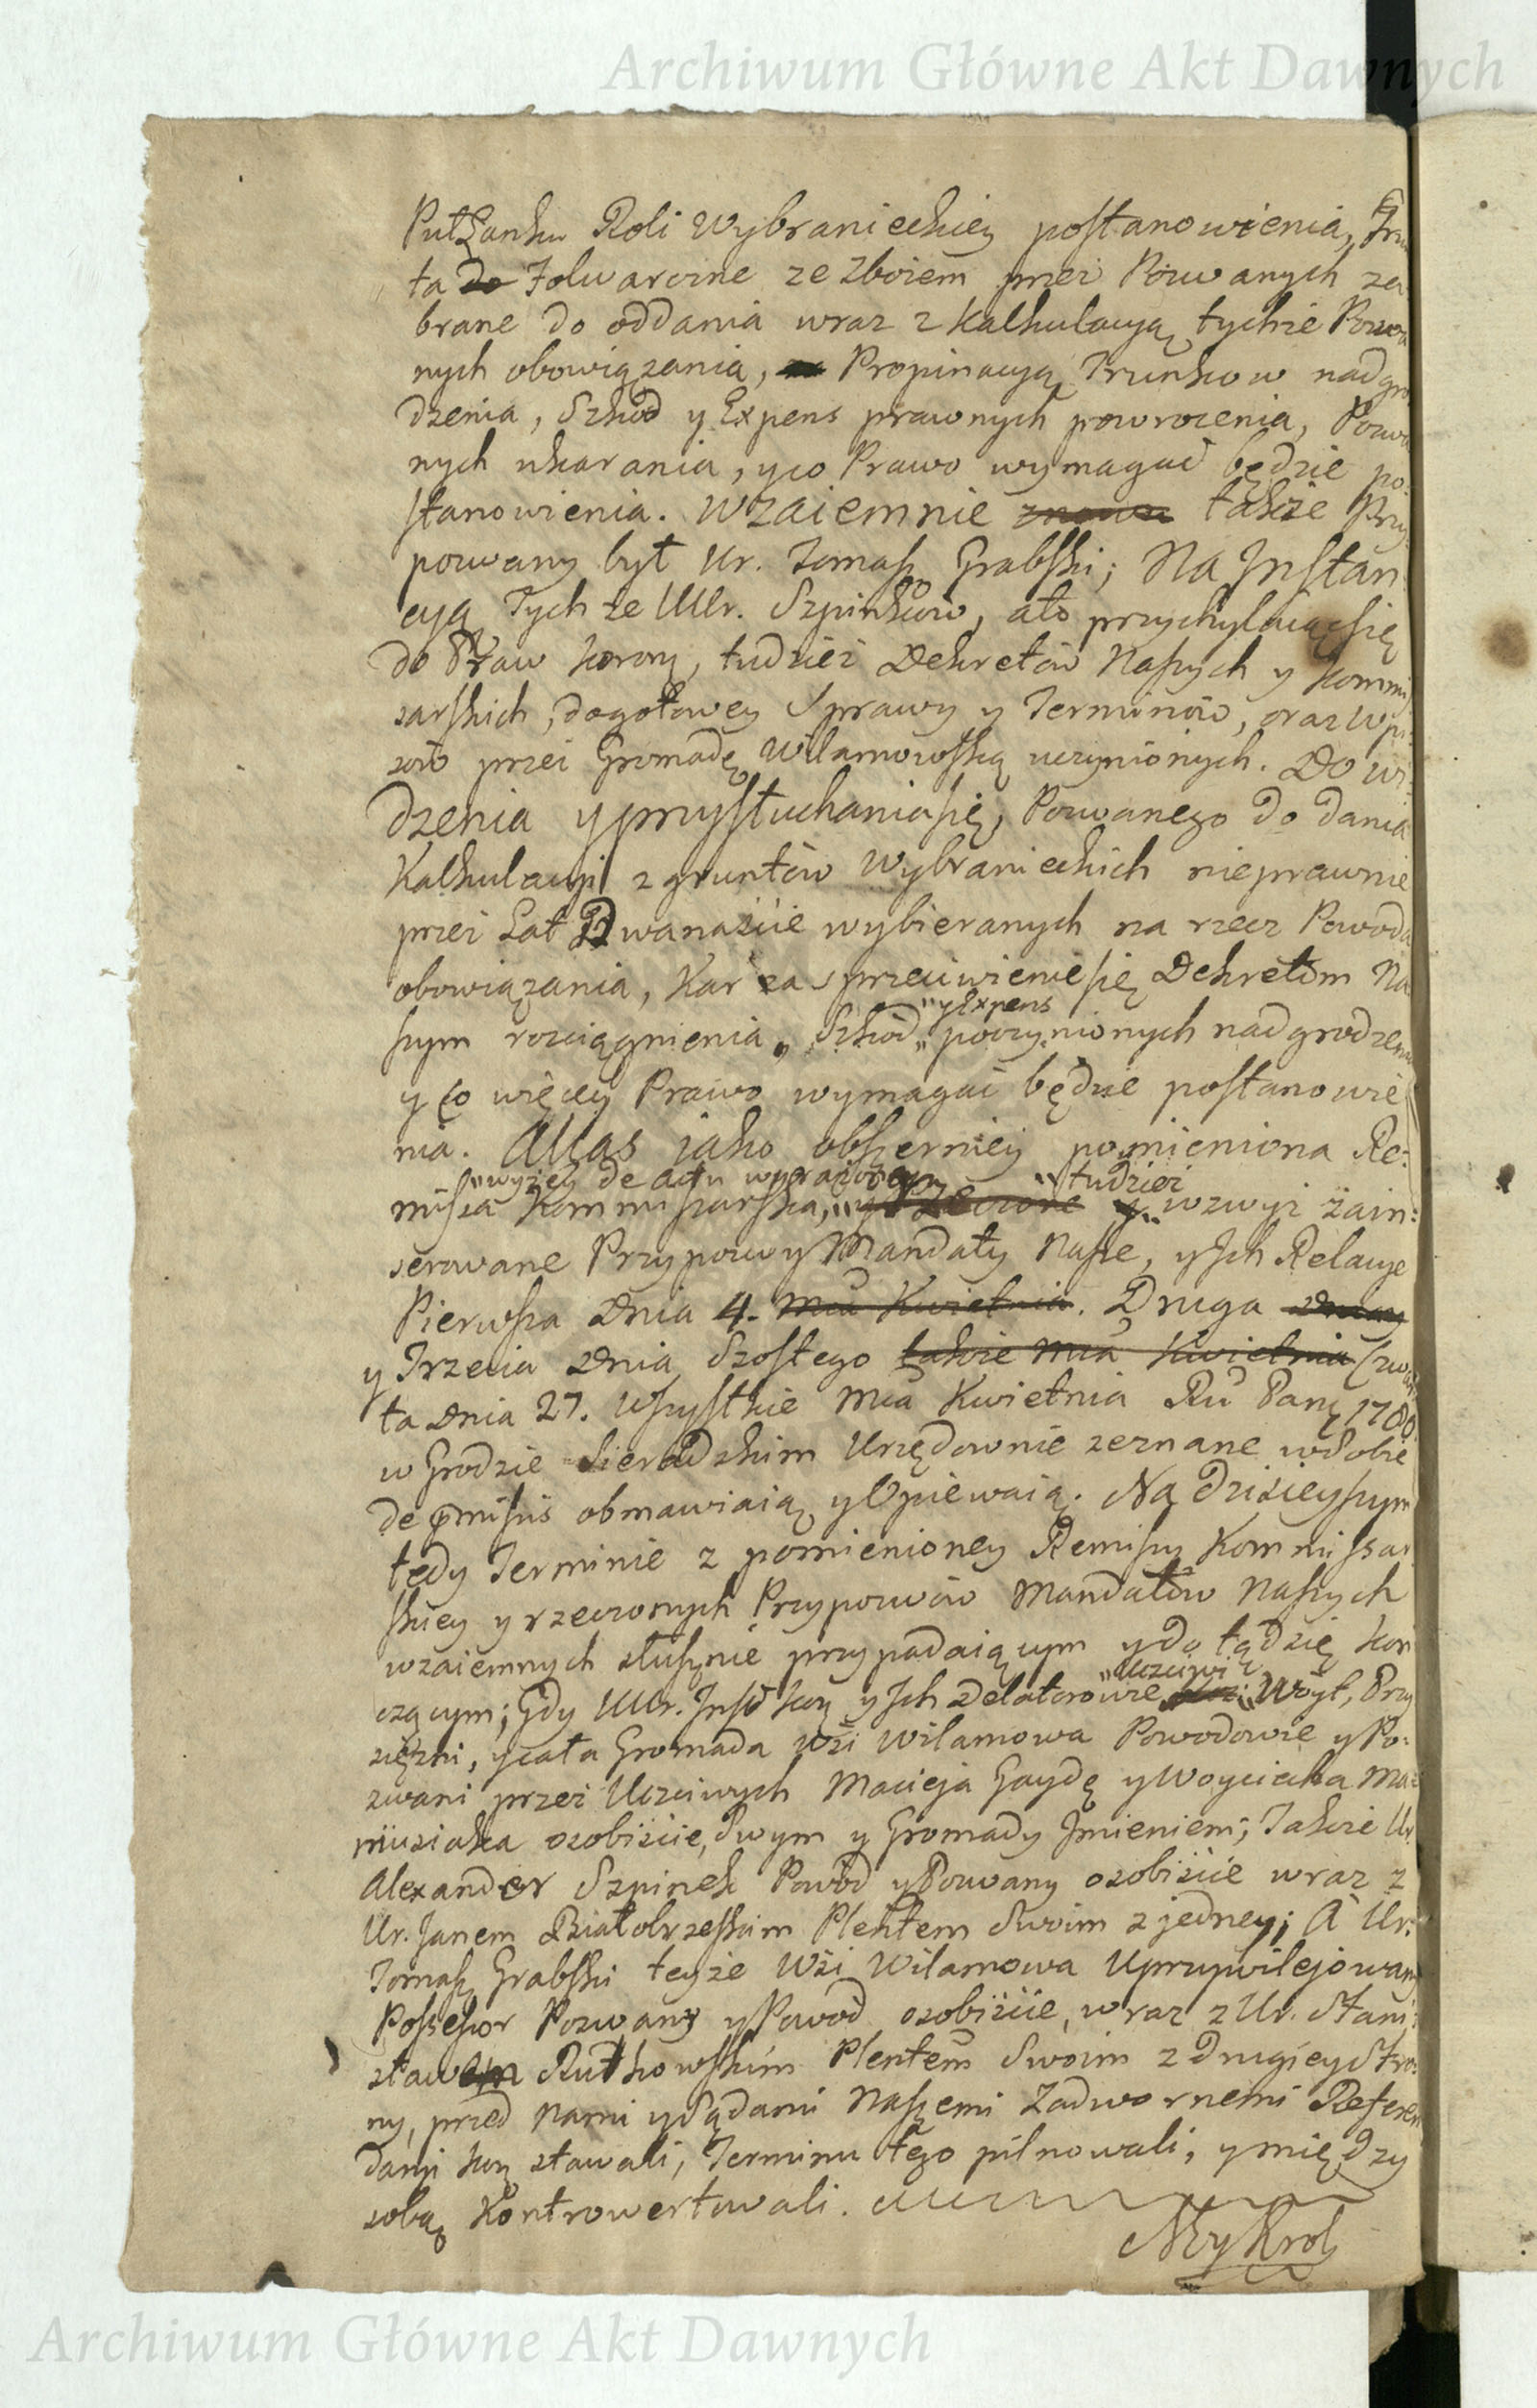 Archiwum Główne Akt Dawnych
PułŁanku Roli Wybranieckiey postanowienia, Grun
ta do Folwarczne ze Zboiem przez Pozwanych za
brane do oddania wraz z Kalkulacyą tychże Pozwa
nych obowiązania, za Propinacyą Trunkow nadgro
dzenia, Szkod y Expens prawnych powrocenia, Pozwa
nych ukarania, y co Prawo wymagać będzie po:
stanowienia. Wzaiemnie znowu także Przy
pozwany był Ur. Tomasz Grabski; Na Instan
cyą Tychże UUr. Szpinkow, a to przychylaiąc się
do Praw Korony, tudzież Dekretów Naszych y Kommis
sarskich, do gotowey Sprawy y Terminów, oraz Wpi
sow przez Gromadę Wilamowską uczynionych. Do wi
dzenia y przysłuchania się, Pozwanego do dania
Kalkulacyi z gruntów Wybranieckich nieprawnie
przez Lat Dwanaście wybieranych na rzecz Powoda
obowiązania, Kar za sprzeciwienie się Dekretom Na
"y Expens
szym rozciągnienia, Szkod" poczynionych nadgrodzenia
y co więcey Prawo wymagać będzie postanowie
nia. Allas jako obszerniey pomieniona Re:
"wyżey de actu wyrażona "tudzież
missa Kommissarska," y Rzeczone y" wzwyż zain:
serowane Przypozwy Mandaty Nasze, y Ich Relacye
Pierwsza Dnia 4. Mca Kwietnia. Druga Dnia
y Trzecia Dnia Szostego także Mca Kwietnia Czwar
ta Dnia 27. Wszystkie Mca Kwietnia Ru Panę 1780.
w Grodzie Sieradzkim Urzędownie zeznane w Sobie
de pmissis obmawiaią y Opiewaią. Na Dzisieyszym
tedy Terminie z pomienioney Remissy Kommissar
skiey y rzeczonych Przypozwów Mandatów Naszych
wzaiemnych słusznie przypadaiącym y do tąd się kon
"Uczciwi
czącym; Gdy UUr. Insť Kory y Ich Delatorowie Woyt, Przy
siężni, y cała Gromada Wsi Wilamowa Powodowie y Po:
zwani przez Uczciwych Macieja Gaydę y Woyciecha Ma
niusiaka osobiście, Swym y Gromady Imieniem; Także Ur.
Alexander Szpinek Powod y Pozwany osobiście wraz z
Ur. Janem Białobrzeskim Plentem Swoim z jedney; A Ur:
Tomasz Grabski teyże Wsi Wilamowa Uprzywilejowany
Possessor Pozwany y Powod osobiście, wraz z Ur. Stani:
sławem Rutkowskim Plentem Swoim z drugiey Stro:
ny, przed Nami y Sądami Naszemi Zadwornemi Referen
daryi Kory stawali, Terminu tego pilnowali, y między
sobą Kontrowertowali.
My Krol
Archiwum Główne Akt Dawnych